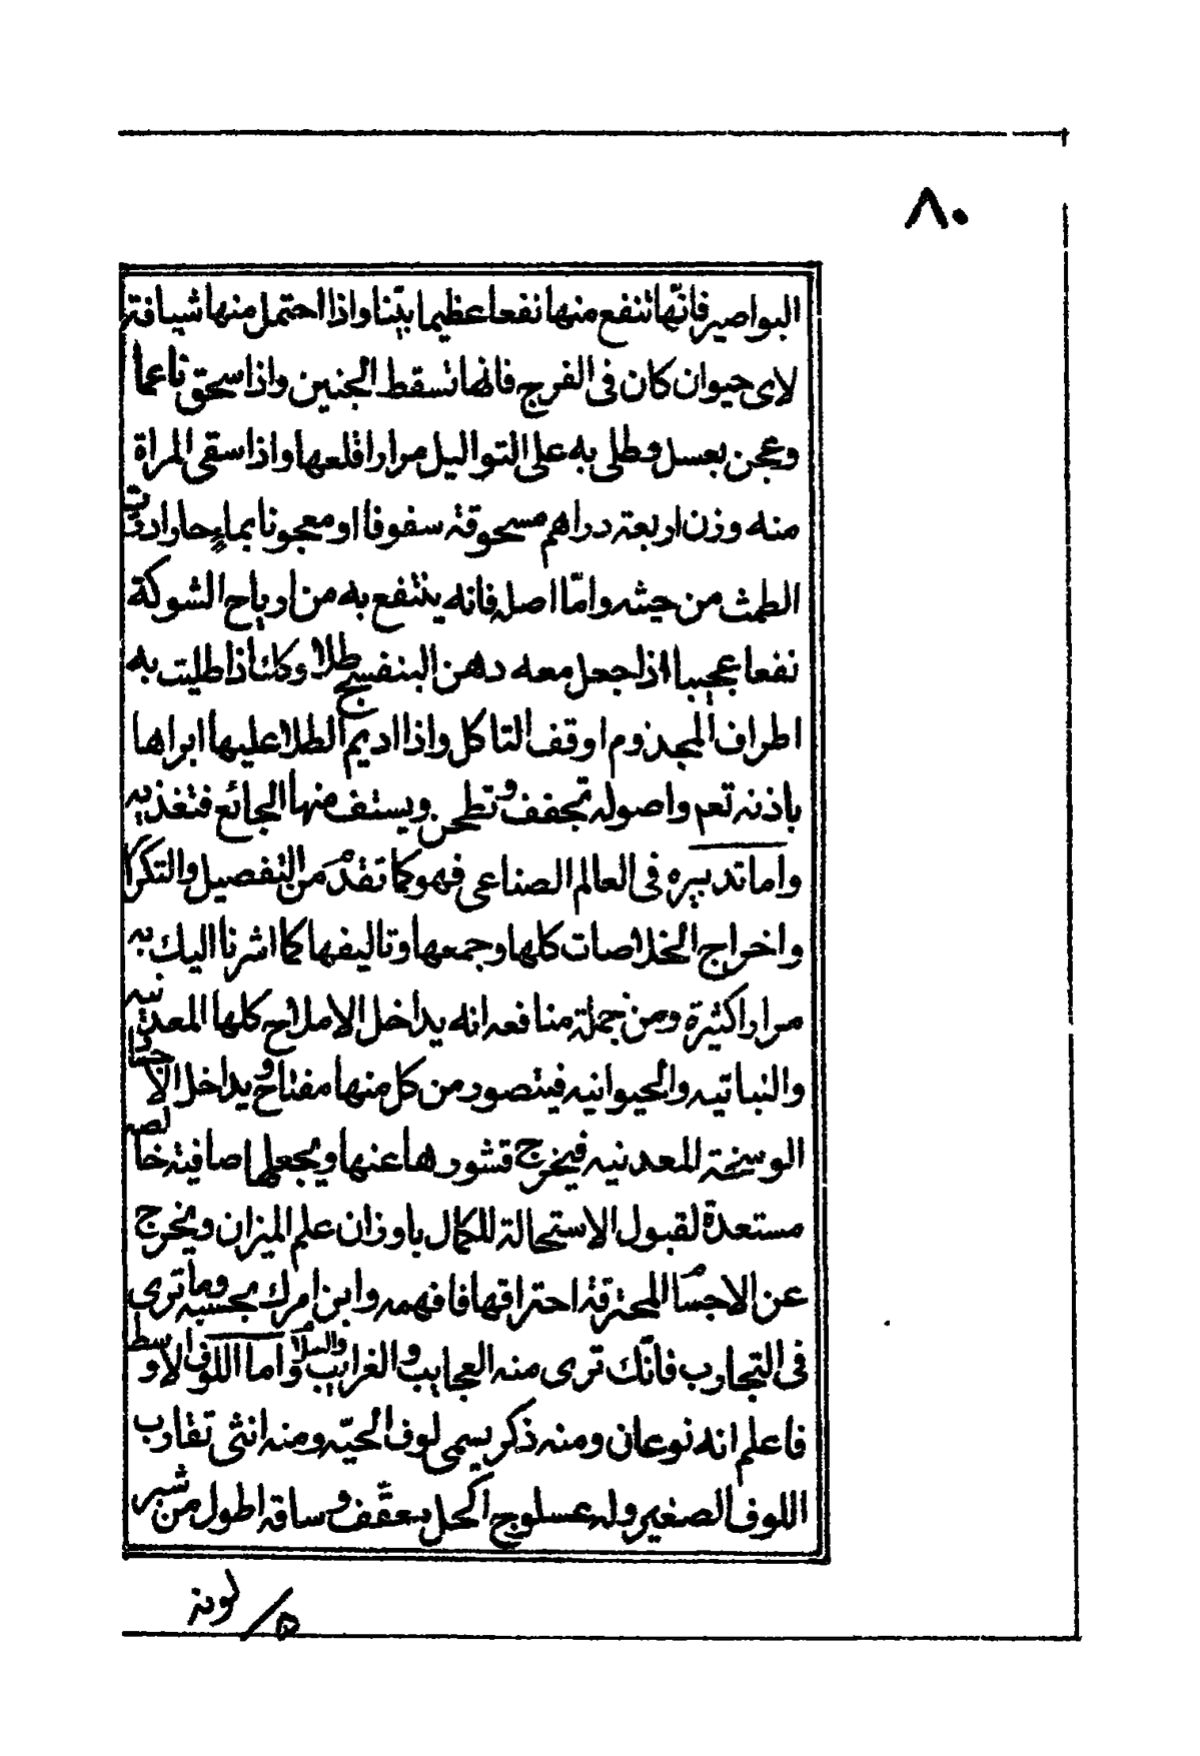 ٨٠
البواصير فانّها تنفع منها نفعا عظيما بيّنا واذا احتمل منها شيافة
لاى حيوان كان فى الفرج فانها تسقط الجنين واذا سحق ناعما
وعجن بعسل وطلى به على التواليل مرارا قلعها واذا سقى المراة
منه وزن اربعة دراهم مسحوقة سفوفا او معجونا بماءٍ حار ادرّت
الطمث من حيثه وامّا اصله فانه ينتفع به من ارياح الشوكة
نفعا عجيبا اذا جعل معه دهن البنفسج طلا وكذا اذا طليت به
اطراف المجذوم اوقف التاكل واذا اديم الطلا عليها ابراها
باذنه تعم واصوله تجفف وتطحن ويستف منها الجائع فتغذيه
واما تدبيره فى العالم الصناعى فهو كما تقدم من التفصيل والتكرا
واخراج الخلاصات كلها وجمعها وتاليفها كما اشرنا اليك به
مرارا كثيرة ومن جملة منافعه انه يداخل الاملاح كلها المعدنيه
والنباتيه والحيوانيه فيتصور من كل منها مفتاح ويداخل الاجساد
الوسخة المعدنيه فيخرج قشورها عنها ويجعلها صافية خالصه
مستعدة لقبول الاستحالة للكمال باوزان علم الميزان ويخرج
عن الاجسام المحترقة احتراقها فافهمه وابن امرك بحسبه وما ترى
فى التجارب فانّك ترى منه العجايب والغرايب والسلام واما اللوف الاوسط
فاعلم انه نوعان ومنه ذكر يسمى لوف الحيّه ومنه انثى تقارب
اللوف الصغير وله عسلوج اكحل معقّف وساقه اطول من شبر
لونه